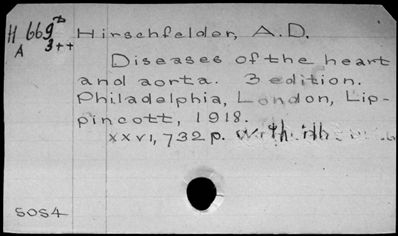 H 669b Hirschfelder, A.D.
A 3++
Diseases of the heart
and aorta. 3 edition.
Philadelphia, London, Lip-
pincott, 1918.
xxvi, 732 p. with
5054